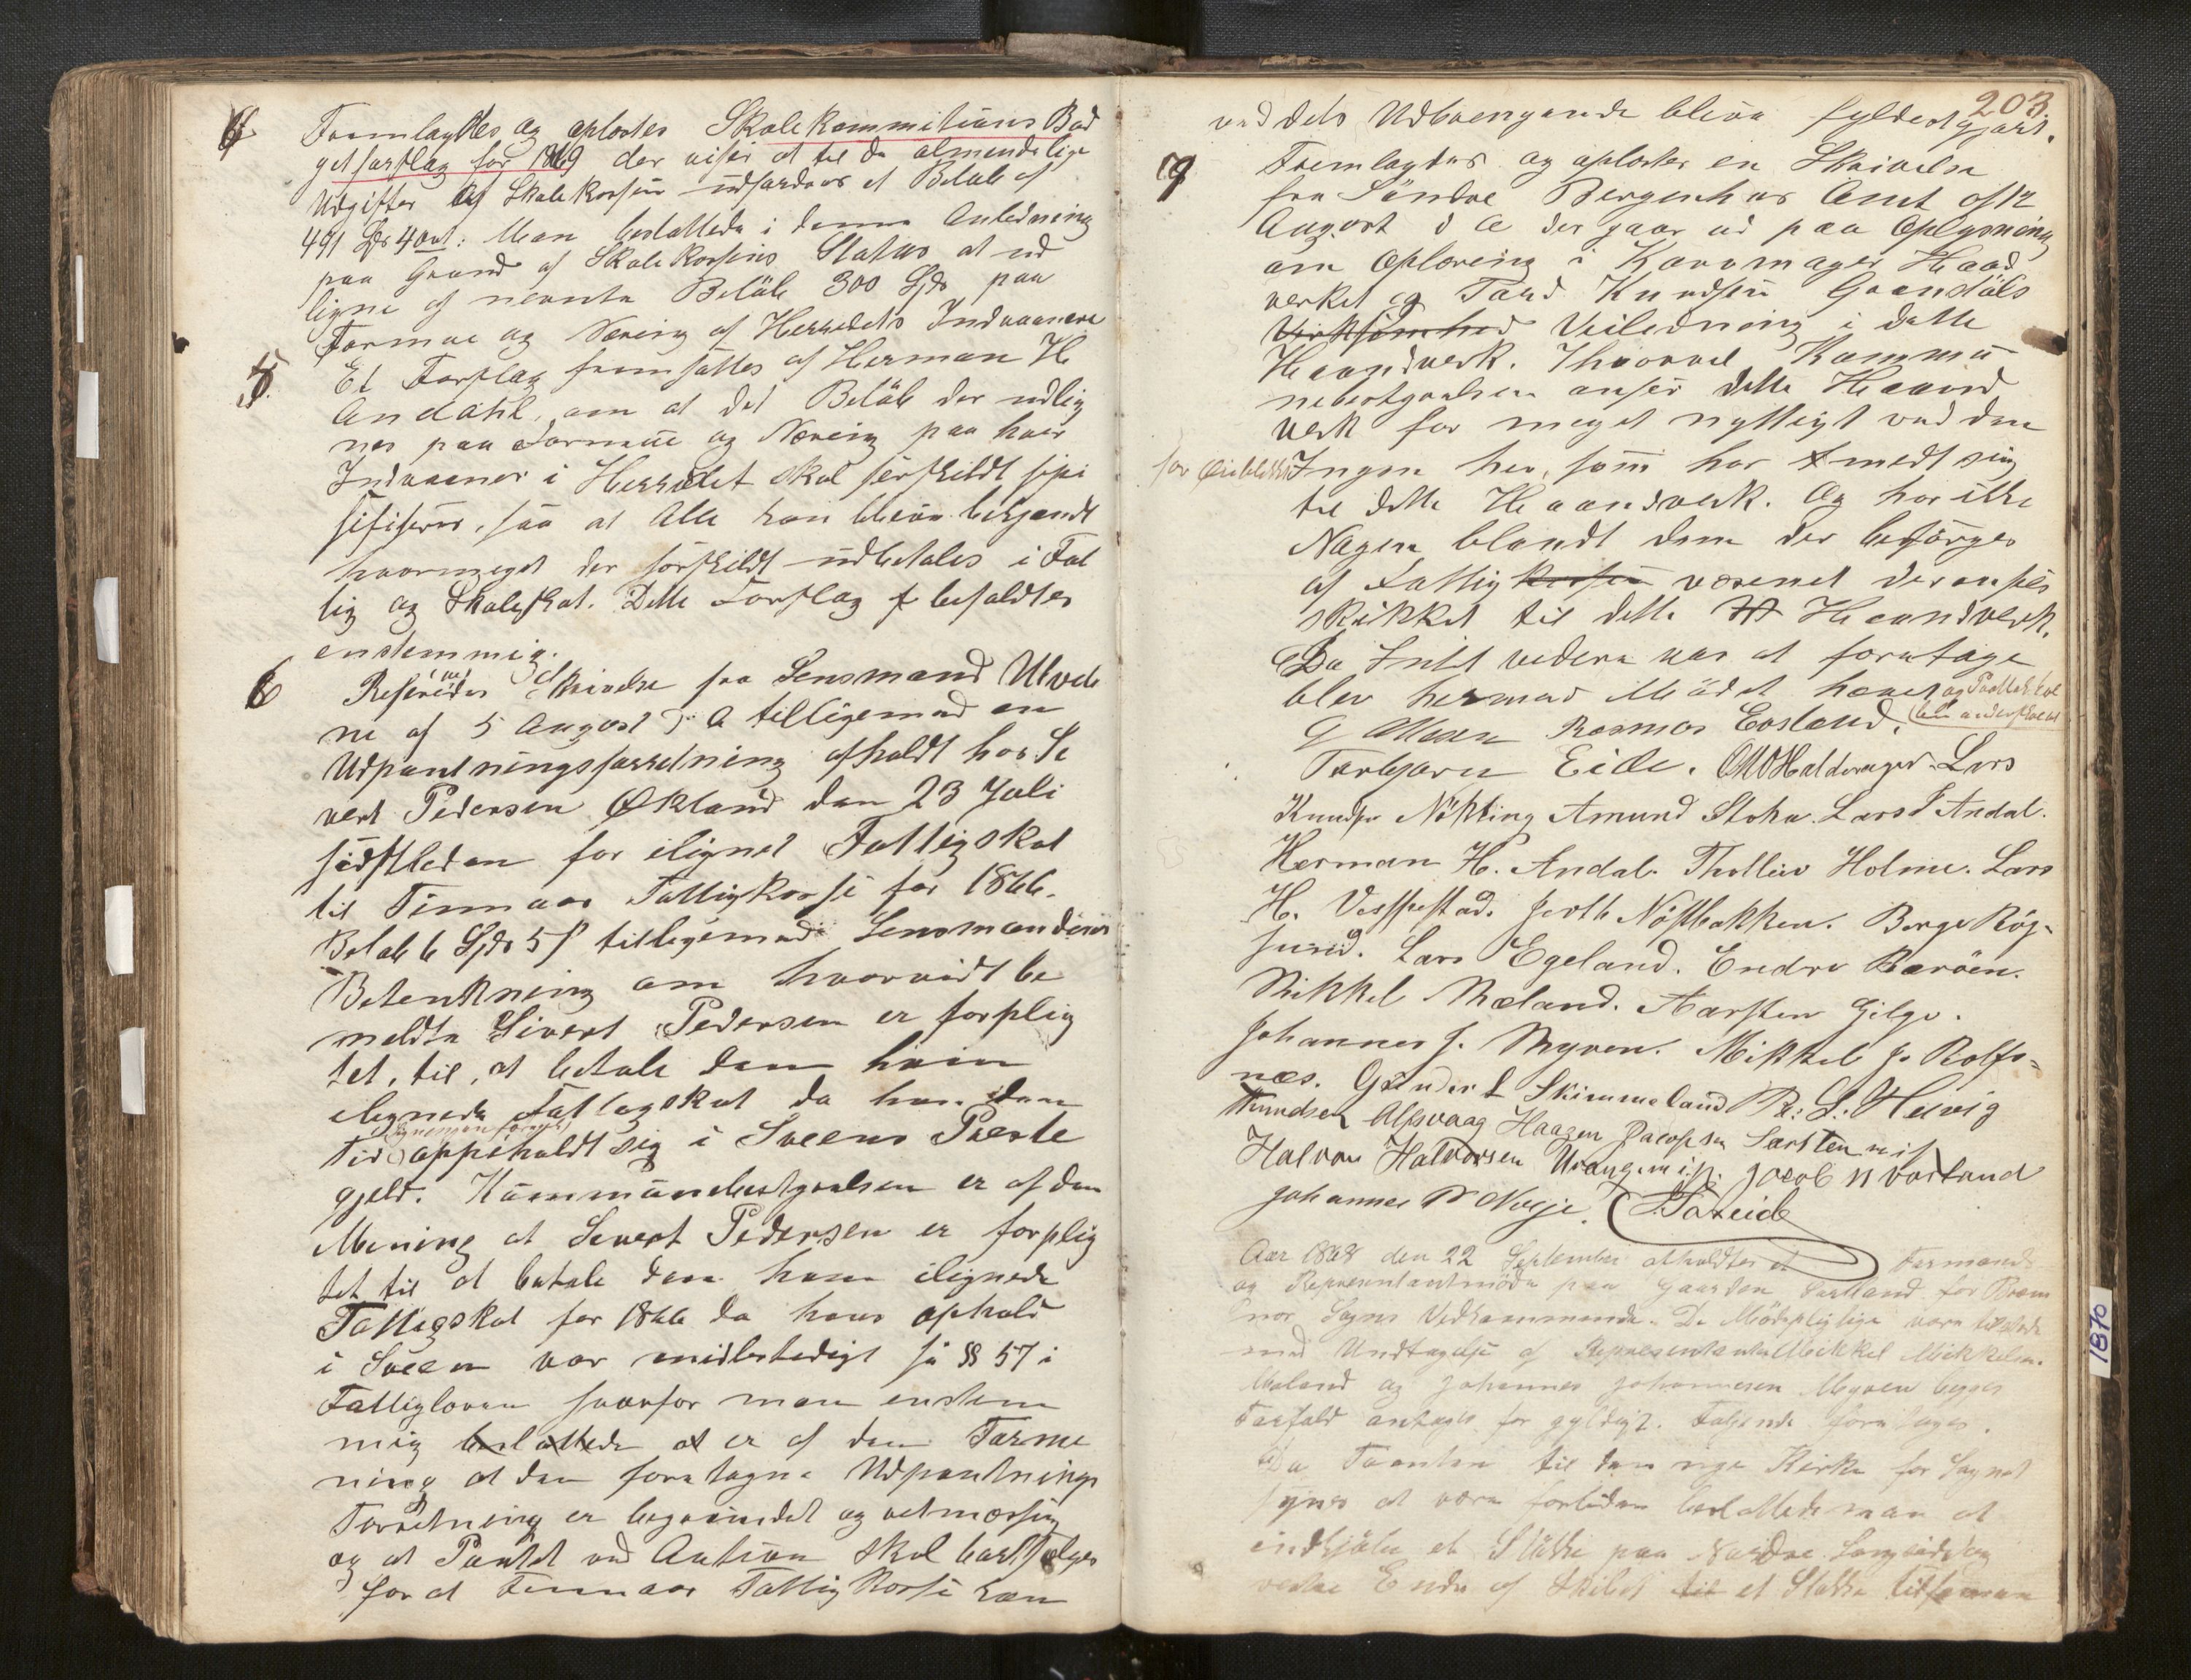 4
Fremlagdes og oplæstes Skolekommitions Bud
getforslag for 1869 der viser at til de almindelige
Udgifter af Skolekassen udfordres et Beløb af
491 Spd 4 ort: Man besluttede i denne Anledning
paa Grund af Skolekassens Status at ud
ligne af nevnte Beløb 300 Spd paa
Formue og Næring af Herredets Indvaanere
5.
Et Forslag fremsattes af Herman H
Andahl, om at det Beløb der udlig
nes paa Formue og Næring paa hver
Indvaaner i Herredet skal særskildt spe
sifiseres, saa at Alle kan blive bekjendt
hvormeget der særskildt udbetales i Fat
tig og Skoleskat. Dette Forslag befaldtes
enstemmig.
6
Refereredes et Skrivelse fra Lensmand Utvede
ne af 5 August d. A tilligemed en
Udpantningsforretning afholdt hos Si
vert Pedersen Økland den 23 Juli
sidstleden for ilignet Fattigskat
til Finnaas Fattigkasse for 1866.
Beløb 6 Spd 5 s tilligemed Lensmandens
Betenkning om hvorvidt be
meldte Sivert Pedersen er forplig
tet, til, at betale den ham
ilignede Fattigskat da han den
Tid oppeholdt sig i Sveens Præste
gjeld. Kommunebestyrelsen er af den
Mening at Sivert Pedersen er forplig
tet til at betale den ham ilignede
Fattigskat for 1866 da hans ophold
i Sveen var midlertidigt jf § 57 i
Fattigloven hvorfor man enstem
mig besluttede at er af den Forme
ning at den foretagne Udpantnings
Forretning er begrundet og retmæssig
og at Pantet ved Auktion skal bortsælges
for at Finnaas Fattigkasse kan
203.
ved dets Udbringende blive fyldestgjort.
7
Fremlagdes og oplæstes en Skrivelse
fra Søndre Bergenhus Amt af 12
August d A der gaar ud paa Oplysning
om Oplæring i Kurvmager Haand
verket og Tard Knudsen Grøndals
Virksomhed Veiledning i dette
Haandverk. Thvorvel Kommu
nebestyrelsen anser dette Haand
verk for meget nyttigt ved den
for Øieblikket Ingen her, som har meldt sig
til dette Haandverk. Og har ikke
Nogen blandt dem der besørges
af Fattigkassen væsenet der anses
skikket til dette Haandverk.
Da Intet videre var at foretage
blev hermed Mødet hævet og Protokol
len underskrevet
G Olsen Rasmus Eosland.
Torbjørn Eide. O M Halderager. Lars
Knudsen Nøkling Amund Stoka. Lars T Andal.
Herman H. Andal. Thollev Holme. Lars
H. Vespestad. Jerth Nøstbakken. Børge Røg-
sund. Lars Egeland. Endre Børøen.
Mikkel Mæland. Karsten Gilje.
Johannes J. Myren. Mikkel J. Rolfs-
næs. Gunder L Skimmeland R: L: Helvig
Knudsen Alfsvaag Haagen Jacopsen Sørsten m i p
Halvor Halvorsen Urang. m. i. p. Jacob N Vorland
Johannes P Nesje. Tareide
Aar 1868 den 22 September afholdtes et Formands
og Representantmøde paa Gaarden Sortland for Brem
nes Sogns Vedkommende. De Mødepligtige vare tilstede
med Undtagelse af Representanterne Mikkel Mikkelsen
Mæland og Johannes Johannesen Myren begges
Forfald antages for gyldigt. Følgende foretages.
Da Tomten til den nye Kirke for Sognet
synes at være forliden besluttede man at
indkjøbe et Stykke paa Nordre Langside og
vestre Ende af Skibet til et Stykke tilsammen
1870